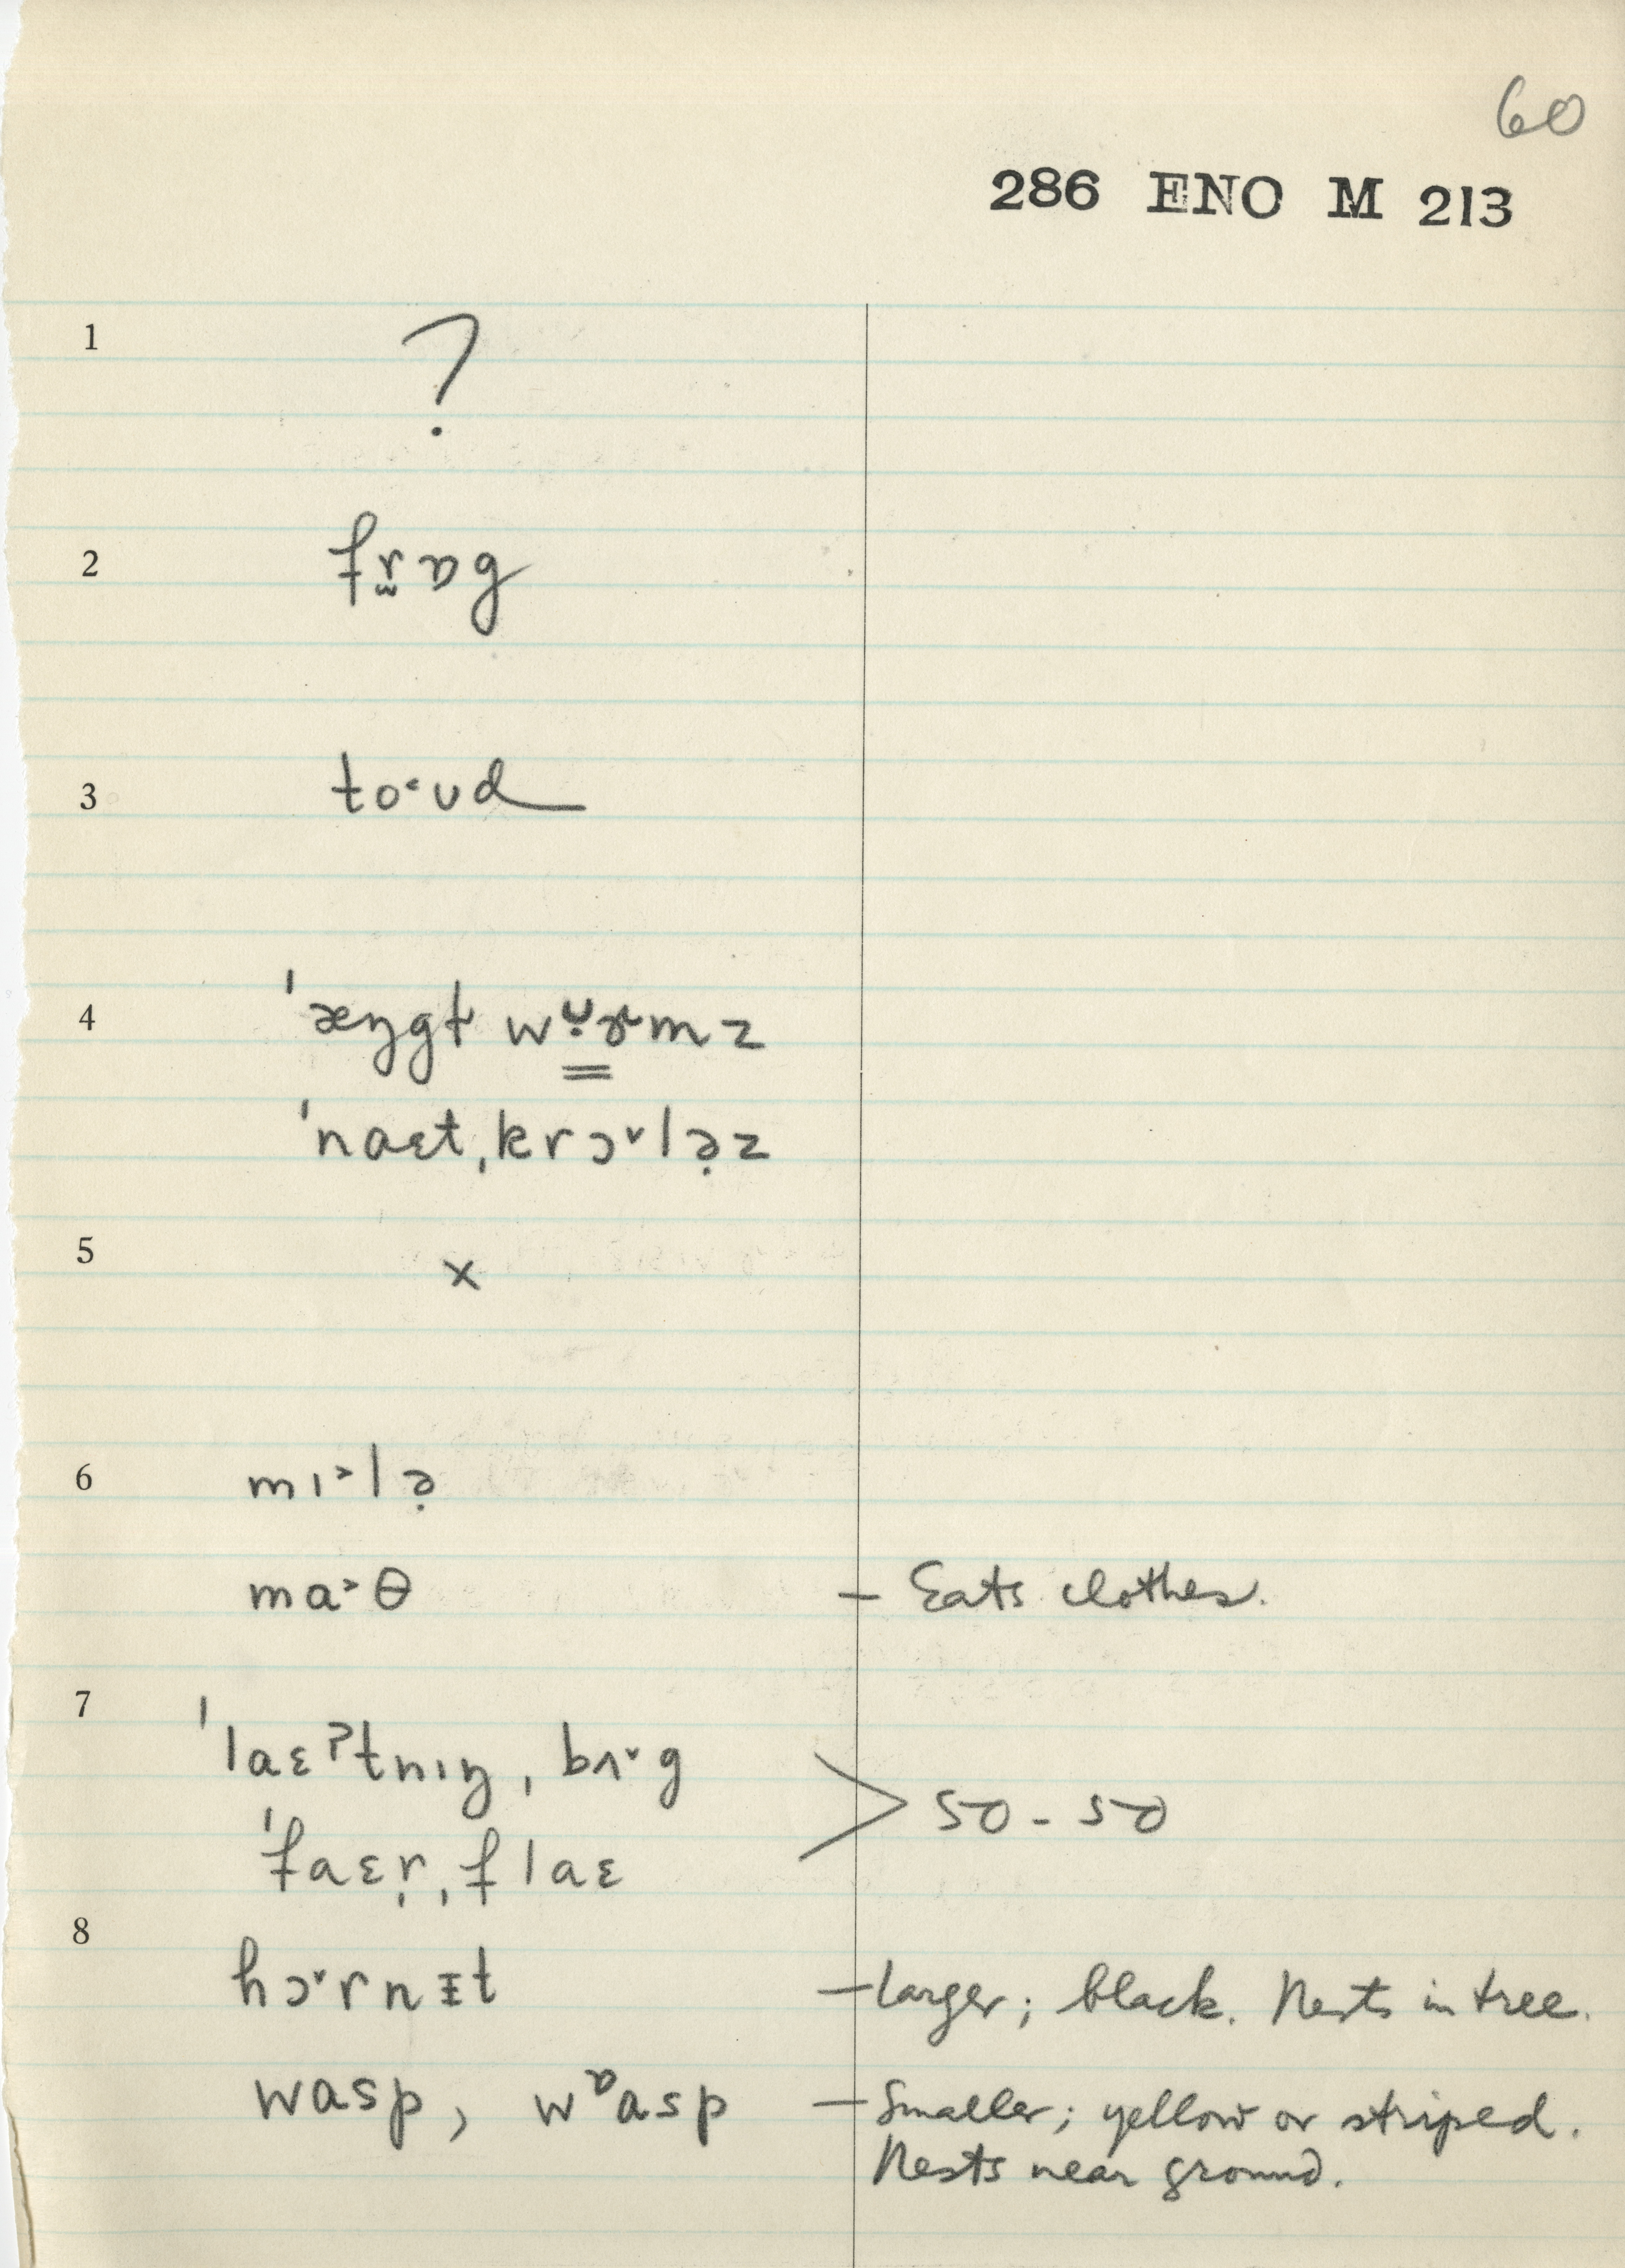 60
286 ENO M 213
1 ?
2 fr̮ɒg
3 to˂ʊd
4 ˈæŋgɫ wʊ̣ɝmz
ˈnaɛt ˌkrɔ˅lə̣z
5 x
6 mɪ˃lə̣
ma˃θ – Eats clothes.
7 ˈlaɛʔtnɪŋ ˌbʌ˅g
ˈfaɛr̩ ˌflaɛ > 50 - 50
8 hɔ˅rnɪ̵t – Larger; black. Nests in tree.
wasp, wᶛasp – Smaller; yellow or striped.
Nests near ground.